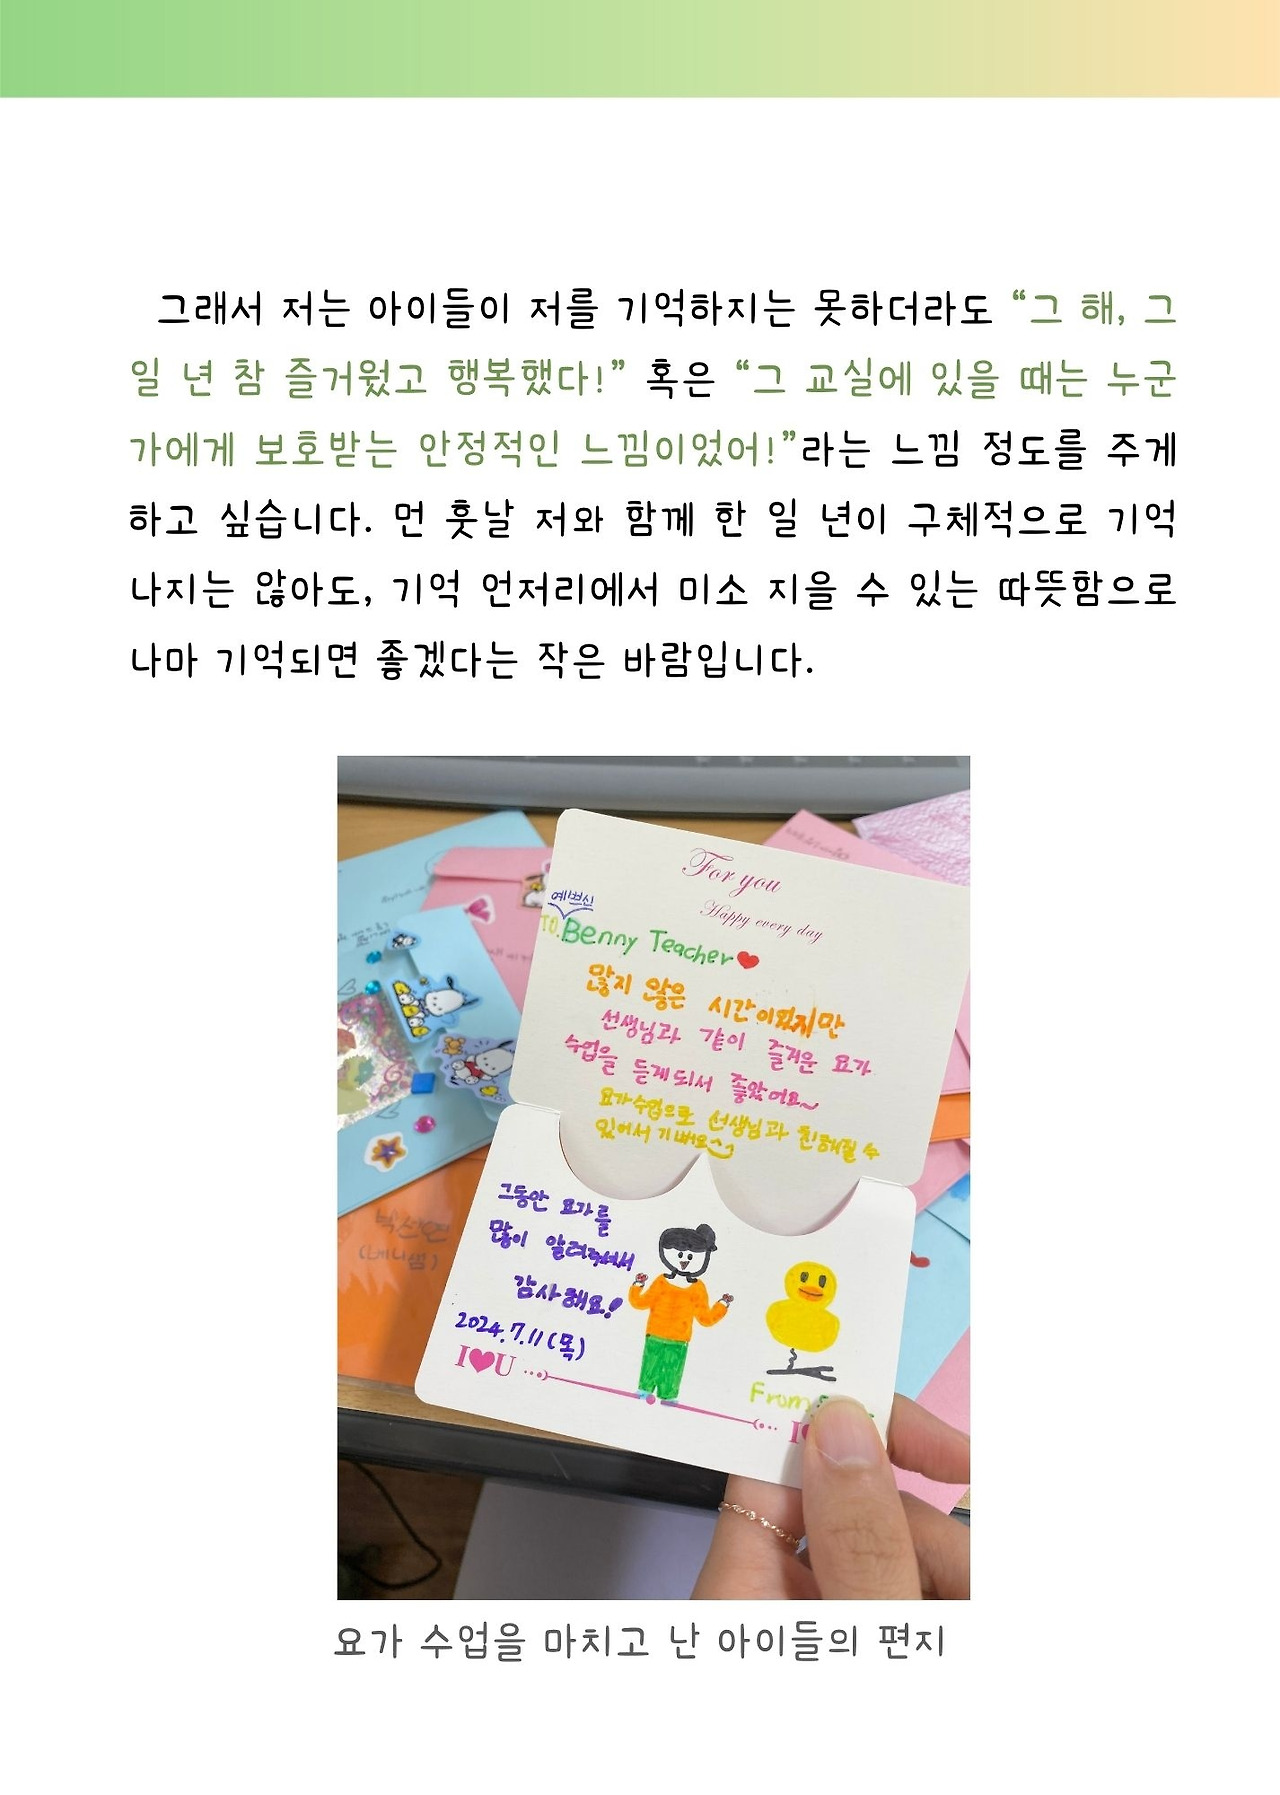 그래서 저는 아이들이 저를 기억하지는 못하더라도 “그 해, 그
일 년 참 즐거웠고 행복했다!” 혹은 “그 교실에 있을 때는 누군
가에게 보호받는 안정적인 느낌이었어!”라는 느낌 정도를 주게
하고 싶습니다. 먼 훗날 저와 함께 한 일 년이 구체적으로 기억
나지는 않아도, 기억 언저리에서 미소 지을 수 있는 따뜻함으로
나마 기억되면 좋겠다는 작은 바람입니다.
For you
Happy every day
예쁘신
TO. Benny Teacher♥
많지 않은 시간이었지만
선생님과 같이 즐거운 요가
수업을 듣게되서 좋았어요~
요가수업으로 선생님과 친해질 수
있어서 기뻐요
그동안 요가를
많이 알려주셔서
감사해요!
2024.7.11(목)
I♥U
From
(베니쌤)
요가 수업을 마치고 난 아이들의 편지